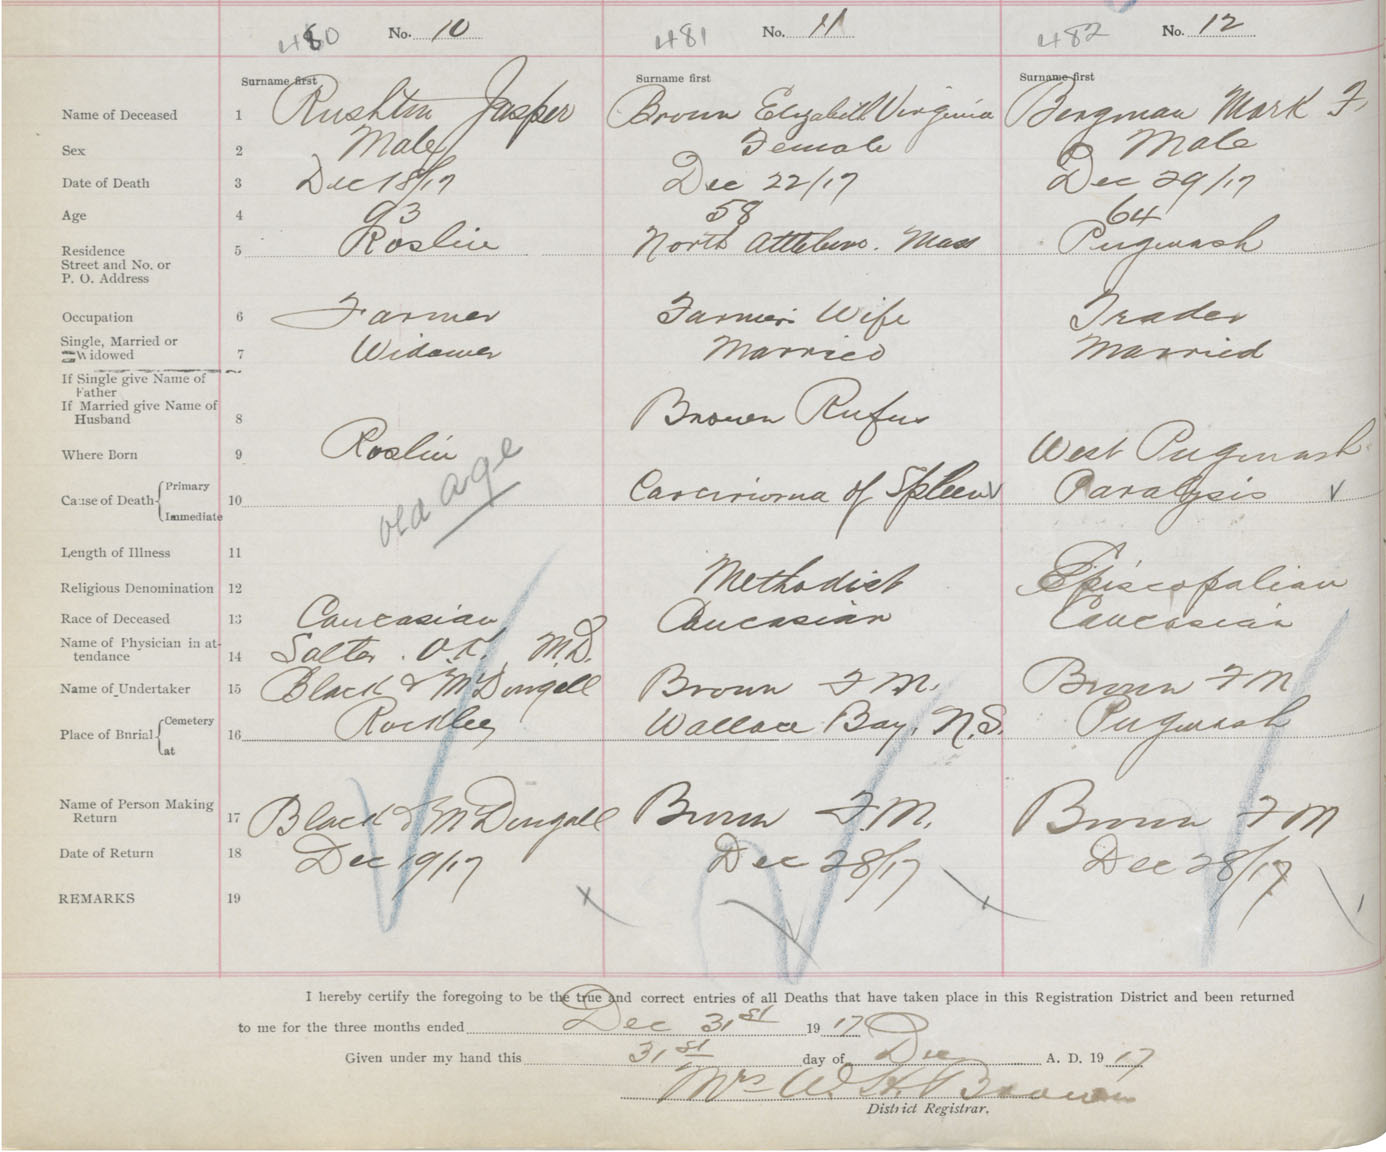 480 No. 10 481 No. 11 482 No. 12
Surname first Surname first Surname first
Name of Deceased 1 Rushton Jasper Brown Elizabeth Virginia Bergman Mark F.
Sex 2 Male Female Male
Date of Death 3 Dec 18/17 Dec 22/17 Dec 29/17
Age 4 93 58 64
Residence 5 Roslin North Attleboro. Mass Pugwash
Street and No. or
P. O. Address
Occupation 6 Farmer Farmer's Wife Trader
Single, Married or
Widowed 7 Widower Married Married
If Single give Name of
Father
If Married give Name of
Husband 8 Brown Rufus
Where Born 9 Roslin West Pugwash
Cause of Death { Primary Immediate 10 old age Carcinoma of Spleen Paralysis
Length of Illness 11
Religious Denomination 12 Methodist Episcopalian
Race of Deceased 13 Caucasian Caucasian Caucasian
Name of Physician in at-
tendance 14 Salter M.D.
Name of Undertaker 15 Black & McDougall Brown F M. Brown F M
Place of Burial { Cemetery at 16 Rockley Wallace Bay, N.S. Pugwash
Name of Person Making
Return 17 Black & McDougall Brown F.M. Brown F M
Date of Return 18 Dec 19/17 Dec 28/17 Dec 28/17
REMARKS 19
I hereby certify the foregoing to be the true and correct entries of all Deaths that have taken place in this Registration District and been returned
to me for the three months ended Dec 31st 1917
Given under my hand this 31st day of Dec A. D. 1917
Mrs W. H. Brown
District Registrar.